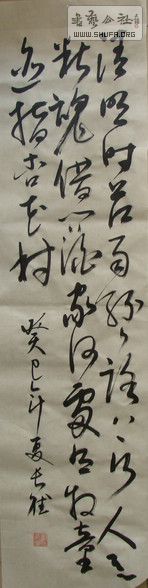 书艺公社
WWW.SHUFA.ORG
清明时节雨纷纷路上行人欲
断魂借问酒家何处有牧童
遥指杏花村
癸巳年夏